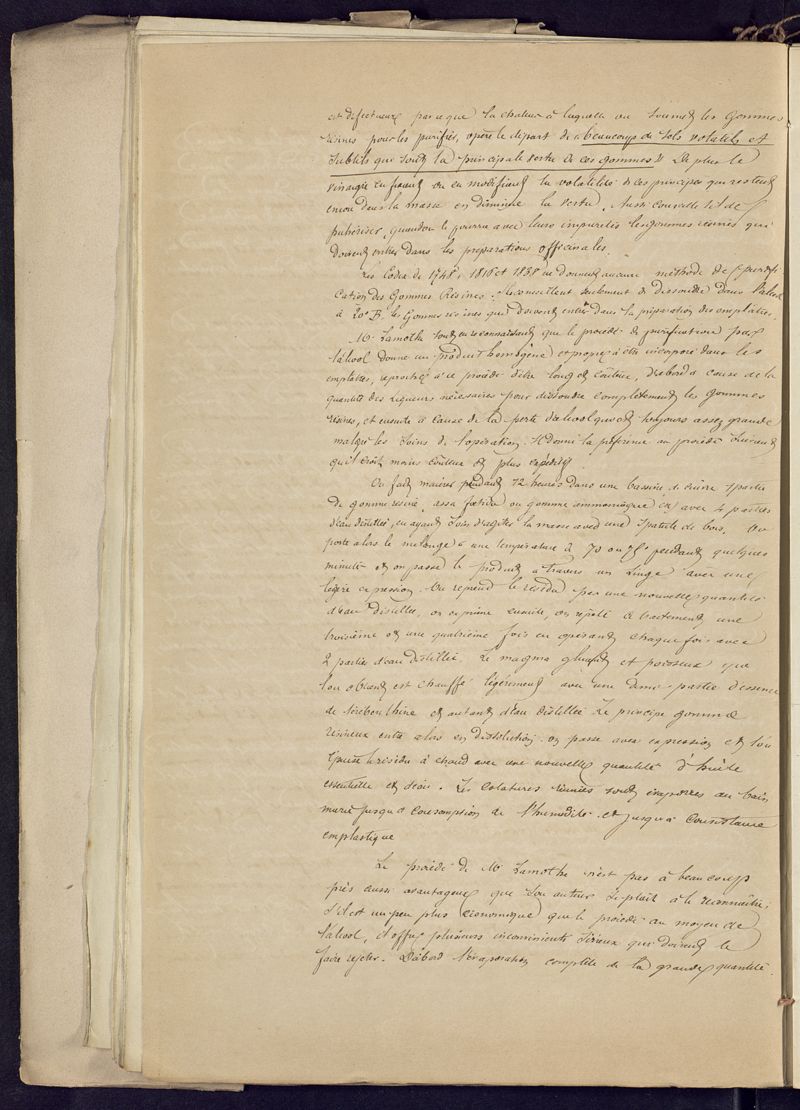 est défectueux parceque la chaleur à laquelle on soumet les gommes
résines pour les purifier, opère le départ de « beaucoup de sels volatils et
subtils qui sont la principale vertu de ces gommes » De plus le
vinaigre en fixant ou en modifiant la volatilité de ces principes qui restent
encore dans la masse en diminue la vertu. Aussi conseille t-il de
pulvériser, quand on le pourra avec leurs impuretés les gommes résines qui
doivent entrer dans les préparations officinales.
Les Codex de 1748, 1816 et 1837 ne donnent aucune méthode de purifi
cation des Gommes Résines. Ils conseillent seulement de dissoudre dans l'alcool
à 20° B. les Gommes résines qui doivent entrer dans la préparation des emplâtres.
Mr Lamothe tout en reconnaissant que le procédé de purification par
l'alcool donne un produit homogène et propre à être incorporé dans les
emplâtres, reproche à ce procédé d'être long et coûteux, d'abord à cause de la
quantité des liqueurs nécessaires pour dissoudre complètement les gommes
résines, et ensuite à cause de la perte d'alcool qui est toujours assez grande
malgré les soins de l'opération. Il donne la préférence au procédé suivant
qu'il croit moins coûteux et plus expéditif.
On fait macérer pendant 12 heures dans une bassine de cuivre 1 partie
de gomme résine, assa foetida ou gomme ammoniaque avec 4 parties
d'eau distillée, en ayant soin d'agiter la masse avec une spatule de bois. On
porte alors le mélange à une température de 70 ou 75° pendant quelques
minutes et on passe le produit à travers un linge avec une
légère expression. On reprend le résidu par une nouvelle quantité
d'eau distillée, on exprime ensuite, on répète ce traitement une
troisième et une quatrième fois en opérant chaque fois avec
2 parties d'eau distillée. Le magma gluant et poisseux que
l'on obtient est chauffé légèrement avec une demi-partie d'essence
de térébenthine et autant d'eau distillée. Le principe gommo
résineux entre alors en dissolution. on passe avec expression et l'on
épuise le résidu à chaud avec une nouvelle quantité d'huile
essentielle et d'eau. Les colatures réunies sont évaporées au bain
marie jusqu'à consomption de l'humidité et jusqu'à consistance
emplastique
Le procédé de Mr Lamothe n'est pas à beaucoup
près aussi avantageux que son auteur se plaît à le reconnaître;
s'il est un peu plus économique que le procédé au moyen de
l'alcool, il offre plusieurs inconvénients sérieux qui doivent le
faire rejeter. D'abord l'évaporation complète de la grande quantité